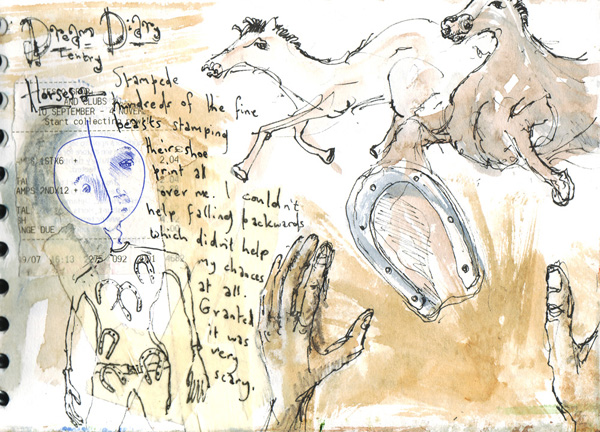 Dream Diary
entry
Stampede
hundreds of the fine
beasts stamping
their shoe
print al
over me. I couldn't
help falling backwards
which didn't help
my chances
at all.
Granted
it was
very
scary.
AND CLUBS
10 SEPTEMBER - 4 NOVEM
Start collecting
1STK6 +
2.04
TAL
AMPS 2NDX12 +
TAL
SH
ANGE DUE
9/07 16:13 092